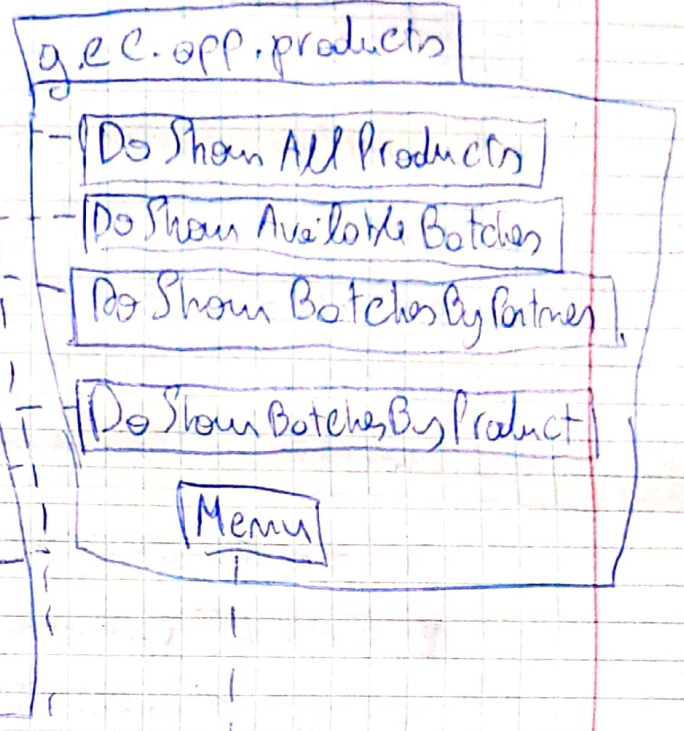 g.e c.app.products
Do Show All Products
Do Show Available Batches
Do Show Batches By Partner
Do Show Batches By Product
Menu